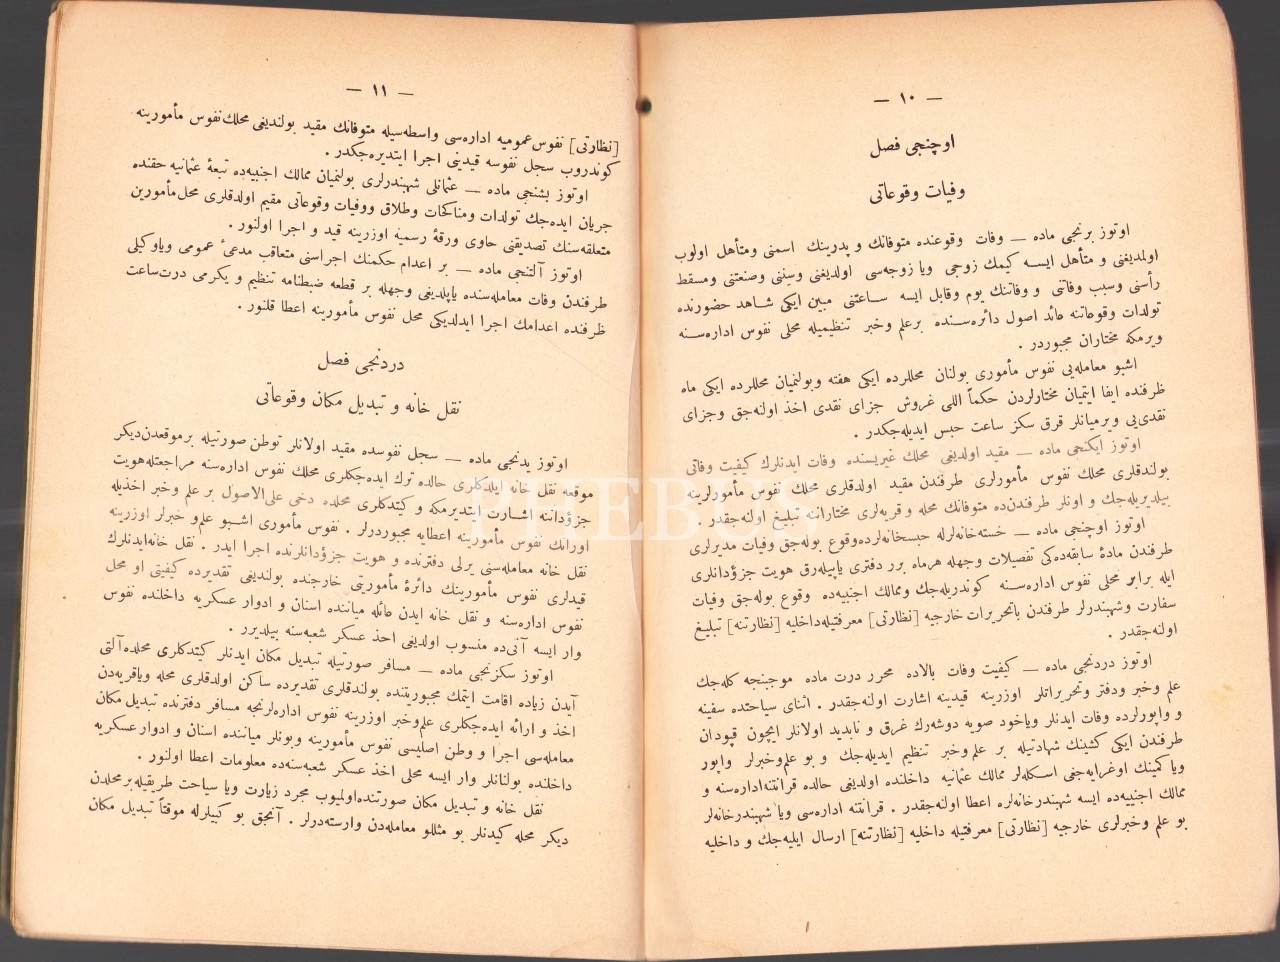 — ١٠ —
اوچنجی فصل
وفیات وقوعاتی
اوتوز برنجی ماده — وفات وقوعنده متوفانك و پدرینك اسمنی ومتأهل اولوب
اولمدیغنی و متأهل ایسه کیمك زوجی ویا زوجه‌سی اولدیغنی وسِننی وصنعتنی ومسقط
رأسنی وسبب وفاتنی و وفاتنك یوم وقابل ایسه ساعتنی مبین ایکی شاهد حضورنده
تولدات وقوعاتنه عائد اصول دائره‌سنده برعلم وخبر تنظیمیله محلی نفوس اداره‌سنه
ویرمکه مختاران مجبوردر .
اشبو معامله‌یی نفوس مأموری بولنان محللرده ایکی هفته وبولنمیان محللرده ایکی ماه
ظرفنده ایفا ایتمیان مختارلردن حکماً اللی غروش جزای نقدی اخذ اولنه‌جق وجزای
نقدی‌یی ویرمیانلر قرق سکز ساعت حبس ایدیله‌جکدر .
اوتوز ایکنجی ماده — مقید اولدیغی محلك غیریسنده وفات ایدنلرك کیفیت وفاتی
بولندقلری محلك نفوس مأمورلری طرفندن مقید اولدقلری محلك نفوس مأمورلرینه
بیلدیریله‌جك و اونلر طرفندن‌ده متوفانك محله و قریه‌لری مختاراننه تبلیغ اولنه‌جقدر .
اوتوز اوچنجی ماده — خسته‌خانه‌لرله حبسخانه‌لرده‌وقوع بوله‌جق وفیات مدیرلری
طرفندن مادهٔ سابقه‌ده‌کی تفصیلات وجهله هرماه برر دفتری یاپیله‌رق هویت جزؤدانلری
ایله برابر محلی نفوس اداره‌سنه کوندریله‌جك وممالك اجنبیه‌ده وقوع بوله‌جق وفیات
سفارت وشهبندرلر طرفندن باتحریرات خارجیه [نظارتی] معرفتیله‌داخلیه [نظارتنه] تبلیغ
اولنه‌جقدر .
اوتوز دردنجی ماده — کیفیت وفات بالاده محرر درت ماده موجبنجه کله‌جك
علم وخبر ودفتر وتحریراتلر اوزرینه قیدینه اشارت اولنه‌جقدر . اثنای سیاحتده سفینه
و واپورلرده وفات ایدنلر ویاخود صویه دوشه‌رك غرق و ناپدید اولانلر ایچون قپودان
طرفندن ایکی کشینك شهادتیله بر علم‌وخبر تنظیم ایدیله‌جك و بو علم‌وخبرلر واپور
ویا کمینك اوغرایه‌جغی اسکله‌لر ممالك عثمانیه داخلنده اولدیغی حالده قرانتنه‌اداره‌سنه و
ممالك اجنبیه‌ده ایسه شهبندرخانه‌لره اعطا اولنه‌جقدر . قرانتنه اداره‌سی ویا شهبندرخانه‌لر
بو علم وخبرلری خارجیه [نظارتی] معرفتیله داخلیه [نظارتنه] ارسال ایلیه‌جك و داخلیه
— ١١ —
[نظارتی] نفوس‌عمومیه اداره‌سی واسطه‌سیله متوفانك مقید بولندیغی محلك‌نفوس مأمورینه
کوندروب سجل نفوسه قیدینی اجرا ایتدیره‌جکدر .
اوتوز بشنجی ماده — عثمانلی شهبندرلری بولنمیان ممالك اجنبیه‌ده تبعهٔ عثمانیه حقنده
جریان ایده‌جك تولدات ومناکحات وطلاق ووفیات وقوعاتی مقیم اولدقلری محل‌مأمورین
متعلقه‌سنك تصدیقنی حاوی ورقهٔ رسمیه اوزرینه قید و اجرا اولنور .
اوتوز آلتنجی ماده — بر اعدام حکمنك اجراسنی متعاقب مدعیٔ عمومی ویاوکیلی
طرفندن وفات معامله‌سنده یاپلدیغی وجهله بر قطعه ضبطنامه تنظیم و یکرمی درت‌ساعت
ظرفنده اعدامك اجرا ایدلدیکی محل نفوس مأمورینه اعطا قلنور .
دردنجی فصل
نقل خانه و تبدیل مکان وقوعاتی
اوتوز یدنجی ماده — سجل نفوسده مقید اولانلر توطن صورتیله برموقعدن‌دیکر
موقعه نقل خانه ایلدکلری حالده ترك ایده‌جکلری محلك نفوس اداره‌سنه مراجعتله‌هویت
جزؤداننه اشارت ایتدیرمکه و کیتدکلری محلده دخی علی‌الاصول بر علم و خبر اخذیله
اورانك نفوس مأمورینه اعطایه مجبوردرلر . نفوس مأموری اشبو علم‌و خبرلر اوزرینه
نقل خانه معامله‌سنی یرلی دفترنده و هویت جزؤدانلرنده اجرا ایدر . نقل خانه‌ایدنلرك
قیدلری نفوس مأمورینك دائرهٔ مأموریتی خارجنده بولندیغی تقدیرده کیفیتی او محل
نفوس اداره‌سنه و نقل خانه ایدن عائله میاننده اسنان و ادوار عسکریه داخلنده نفوس
وار ایسه آنی‌ده منسوب اولدیغی اخذ عسکر شعبه‌سنه بیلدیرر .
اوتوز سکزنجی ماده — مسافر صورتیله تبدیل مکان ایدنلر کیتدکلری محلده‌آلتی
آیدن زیاده اقامت ایتمك مجبوریتنده بولندقلری تقدیرده ساکن اولدقلری محله ویاقریه‌دن
اخذ و ارائه ایده‌جکلری علم‌وخبر اوزرینه نفوس اداره‌لرنجه مسافر دفترنده تبدیل مکان
معامله‌سی اجرا و وطن اصلیسی نفوس مأمورینه وبونلر میاننده اسنان و ادوارعسکریه
داخلنده بولنانلر وار ایسه محلی اخذ عسکر شعبه‌سنه‌ده معلومات اعطا اولنور .
نقل خانه و تبدیل مکان صورتنده‌اولمیوب مجرد زیارت ویا سیاحت طریقیله‌برمحلدن
دیکر محله کیدنلر بو مثللو معامله‌دن وارسته‌درلر . آنجق بو کبیلرله موقتاً تبدیل مکان
PHEBUS